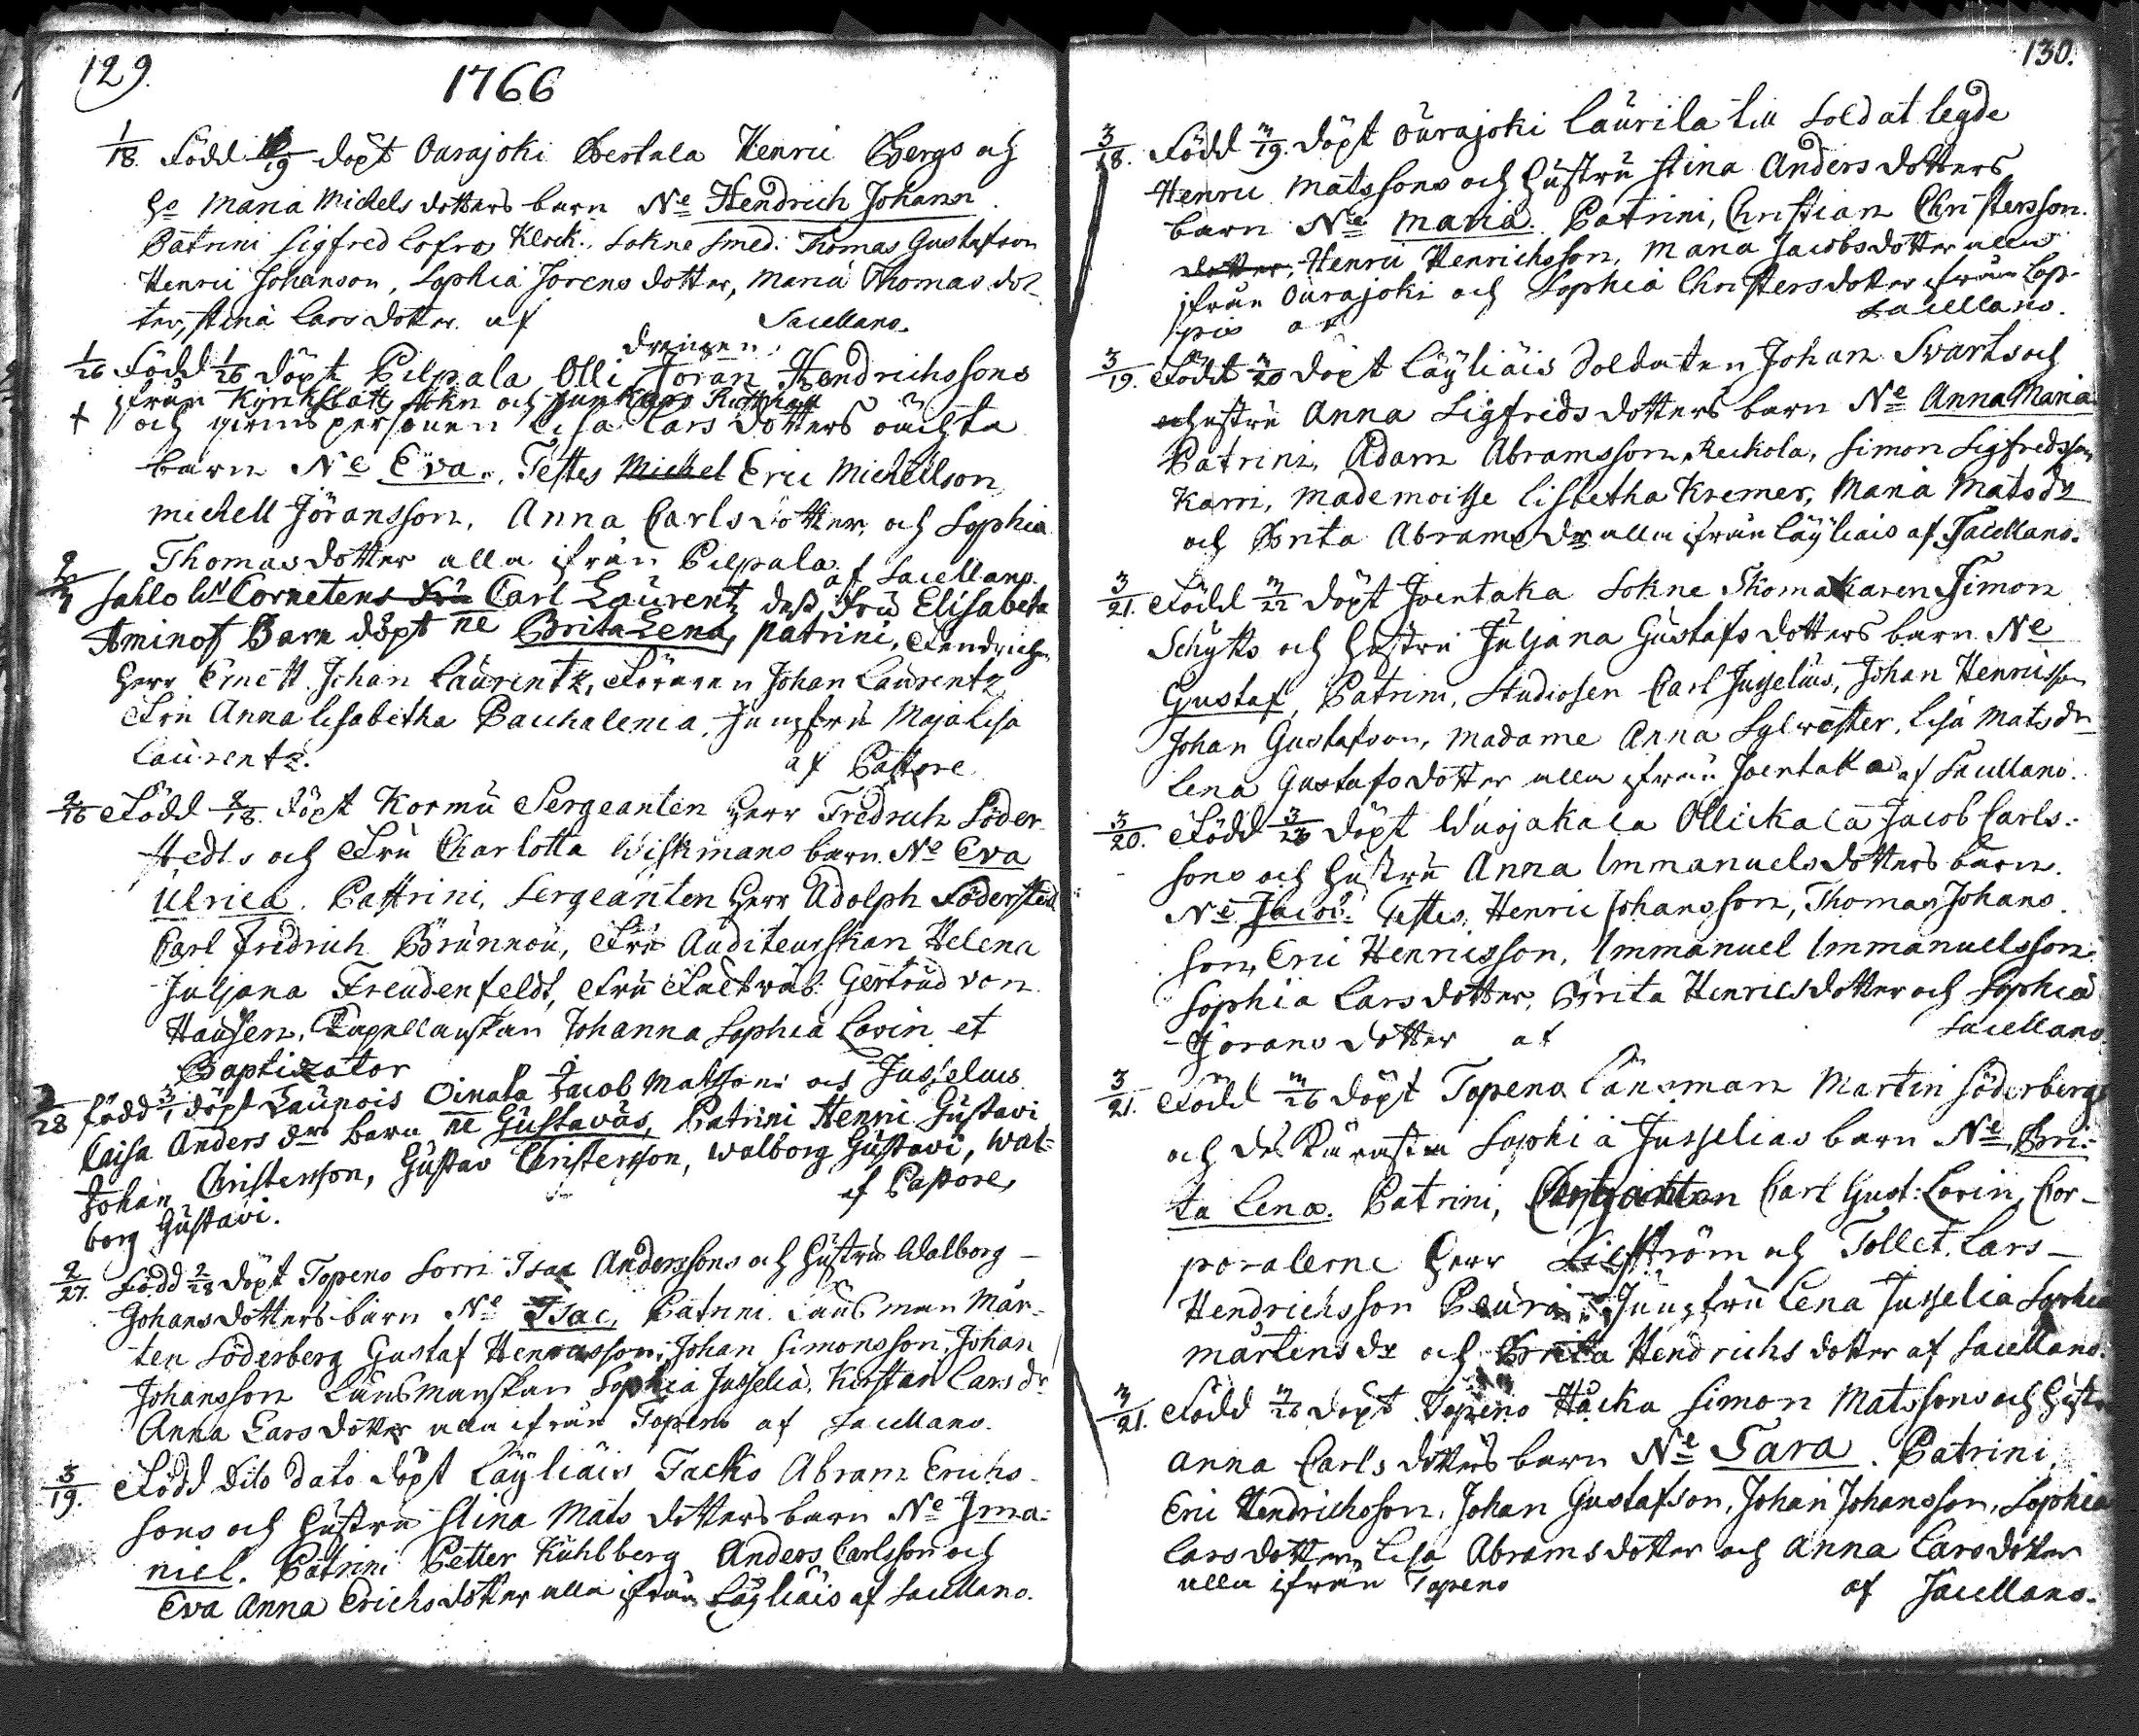 129.
1766
1/18. Född 1/19 döpt Ourajoki Bertala Henric Bergs och
ho Maria Michels dotters barn Ne Hendrich Johann.
Patrini Sigfred Lofro Klock., Sokne Smed: Thomas Gustafson
Henric Johanson, Sophia Jörens dotter, Maria Thomas dot-
ter, Stina Lars dotter. af Sacellano.
drängen
1/26 Född 1/26 döpt Pilpala Olli Jöran Hendrichssons
ifrån Kyrkslätt Sokn och
+ och qvinspersonen Lisa Lars dotters oächta
barn Ne Eva. Testes Michel Eric Michellson
Michell Jöransson, Anna Carls dotter, och Sophia
Thomas dotter alla ifrån Pilpala. af Sacellano.
Sahlo Cornetens Fru Carl Laurentz dess Fru Elisabeta
Aminof Barn döpt ne Brita Lena, patrini, Fendrichen
Herr Ernett Johan Laurentz, Föraren Johan Laurentz
Fru Anna Lisabetha Pauchalenia, Jungfru Maja Lisa
Laurentz. af Pastore
2/16 Född 2/18. döpt Kormu Sergeanten Herr Fredrich Söder
stedts och Fru Charlotta Wiskmans barn. Ne Eva
Ulrica. Patrini, Sergeanten Herr Adolph Söderstedt
Carl Fredrich Brunnou, Fru Auditeurskan Helena
Juljana Freudenfeldt, Fru Fältwäb: Gertrud von
Hausen, Capellanskan Johanna Sophia Lovin et
Baptizator Jusselius
2/28 född 3/1 döpt Launois Oinala Jacob Matssons och
Caisa Anders drs barn ne Gustavus, Patrini Henric Gustavi
Johan Christersson, Gustav Christersson, Walborg Gustavi, Wal=
borg Gustavi. af Pastore,
2/27. Född 2/28 döpt Topeno Sorri Isac Anderssons och Hustru Walborg
Johans dotters barn Ne Isac, Patrini. Länsman Mår-
ten Söderberg Gustaf Henricsson, Johan Simonsson, Johan
Johansson Länsmanskan Sophia Jusselia, Kirstin Lars dr
Anna Lars dotter alla ifrån Topeno af Sacellano.
3/19. Född dito dato döpt Läyliäis Jacks Abram Erichs-
sons och Hustru Stina Mats dotters barn Ne Jma-
niel. Patrini Petter Kuhlberg Anders Carlsson och
Eva Anna Erichs dotter alla ifrån Läyliäis af Sacellano.
130.
3/18. Född 3/19. döpt Ourajoki Laurila till Soldat legde
Henric Matssons och Hustru Stina Anders dotters
barn Ne Maria. Patrini, Christian Christersson.
dotter, Henric Henrichsson, Maria Jacobsdotter alla
ifrån Ourajoki och Sophia Christersdotter ifrån Lop-
pis af Sacellano.
3/19. Född 3/20 döpt Läyliäis Soldaten Johan Svarts och
hustru Anna Sigfrids dotters barn Ne Anna Maria
Patrini, Adam Abramsson, Keckola, Simon Sigfredsson
Karri, Mademoisse Lisbetha Kremer, Maria Mats dr
och Brita Abrams dr alla ifrån Läyliäis af Sacellano.
3/21. Född 3/22 döpt Joentaka Sokne Skomakaren Simon
Schytts och Hustru Juljana Gustafs dotters barn Ne
Gustaf, Patrini, Studiosen Carl Jusselius, Johan Henricsson
Johan Gustafson, Madame Anna Sylwester, Lisa Mats dr
Lena Gustafs dotter alla ifrån Joentaka af Sacellano.
3/20. Född 3/23 döpt Wuojakala Ollickala Jacob Carls-
sons och Hustru Anna Immanuels dotters barn.
Ne Jacob. Testes, Henric Johansson, Thomas Johans
son, Eric Henricsson, Immanuel Immanuelsson.
Sophia Lars dotter, Brita Henricsdotter och Sophia
Görans dotter af Sacellano
3/21. Född 3/26 döpt Topeno Länsman Martin Söderbergs
och des Käresta Sophia Jusselias barn Ne Bri-
ta Lena. Patrini, Carl Gust: Lovin, Cor-
poralerne Herr Liljström och Tollet. Lars
Hendrichsson Peura, Jungfru Lena Jusselia Sophia
Mårtens dr och Brita Hendrichs dotter af Sacellano.
3/21. Född 3/26 döpt Topeno Hacka Simon Matssons och Hustru
Anna Carls dotters barn Ne Sara. Patrini,
Eric Hendrichsson, Johan Gustafson, Johan Johansson, Sophia
Lars dotter, Lisa Abrams dotter och Anna Lars dotter
alla ifrån Topeno af Sacellano.